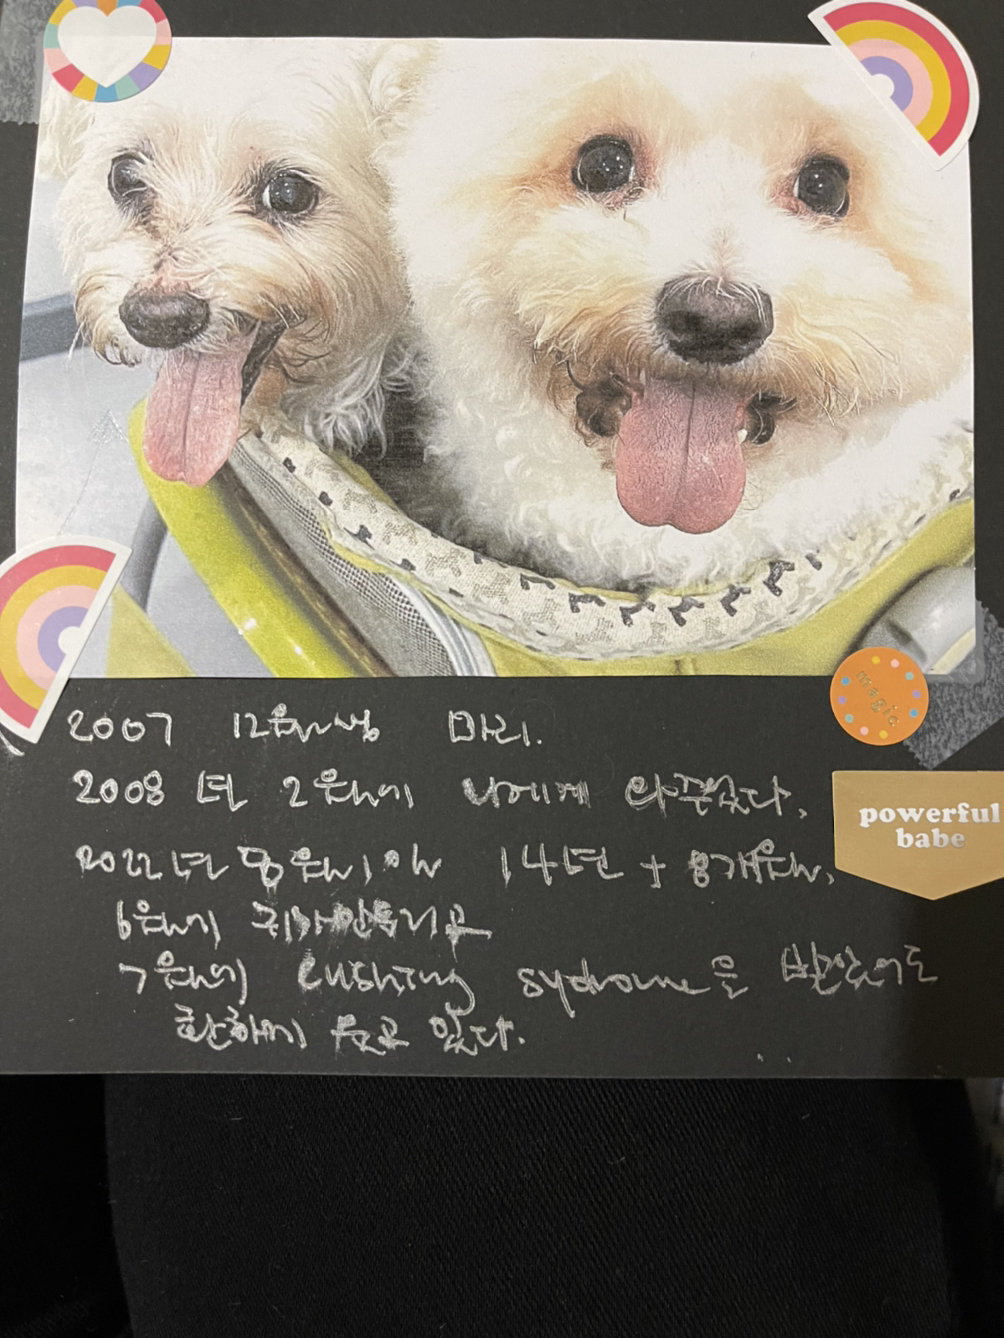 2007 12월생 마리.
2008년 2월에 나에게 와주었다,
powerful
babe
magic
2022년 8월이 14년 + 8개월,
6월에 귀가 안들리고
7월에 cushing sydrome을 받았어도
환하게 웃고 있다.